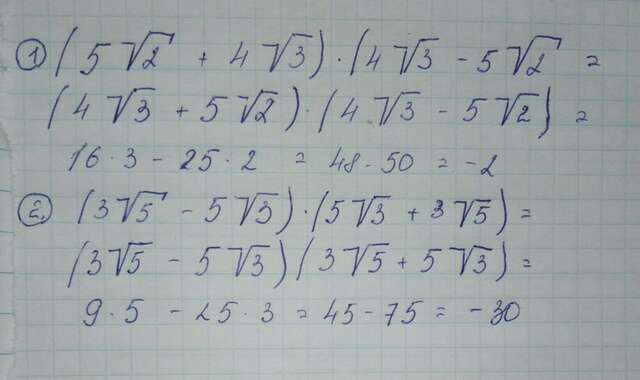 1) (5√2 + 4√3) · (4√3 - 5√2 =
(4√3 + 5√2) · (4√3 - 5√2) =
16·3 - 25·2 = 48-50 = -2
2. (3√5 - 5√3) · (5√3 + 3√5) =
(3√5 - 5√3) (3√5 + 5√3) =
9·5 - 25·3 = 45-75 = -30